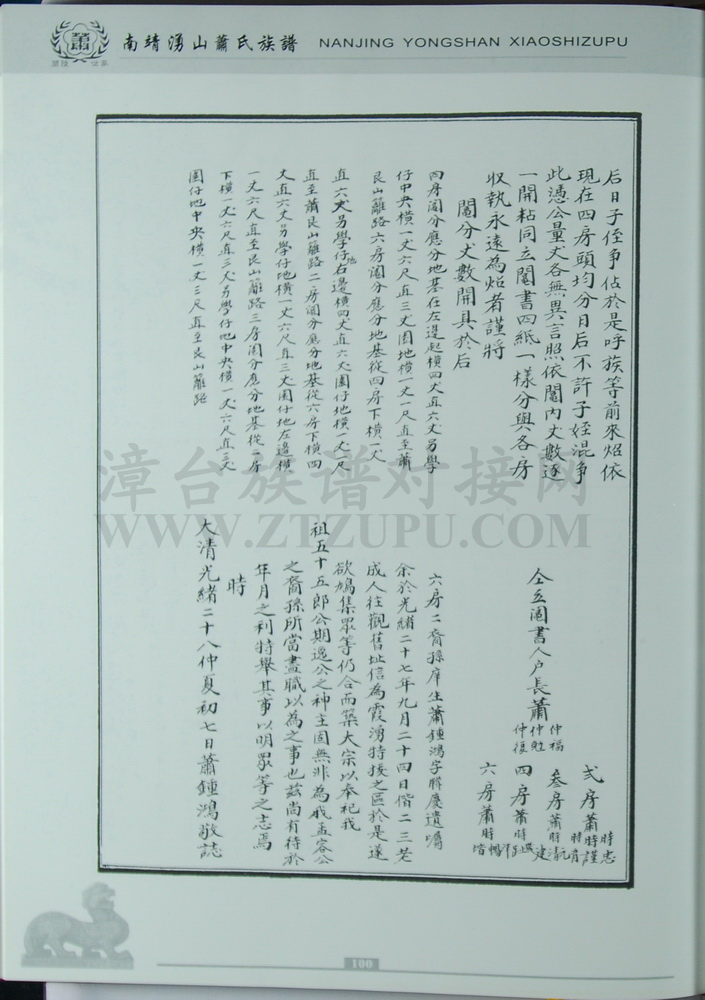 南靖湧山蕭氏族譜 NANJING YONGSHAN XIAOSHIZUPU
后日子侄争佔於是呼族等前來炤依
現在四房頭均分日后不許子姪混争
此憑公量丈各無異言照依鬮内丈數逐
一開粘同立鬮書四紙一樣分與各房
収執永遠為炤者謹將
鬮分丈數開具於后
四房鬮分應分地基在左邊起橫四丈直六丈另學
仔中央橫一丈六尺直三丈園地橫一丈一尺直至蕭
艮山籬路六房鬮分應分地基從四房下橫一丈
直六丈另學仔地右邊橫四丈直六丈園仔地橫一丈一尺
直至蕭艮山籬路二房鬮分應分地基從六房下橫四
丈直六丈另學仔地橫一丈六尺直三丈園仔地左邊橫
一丈六尺直至艮山籬路三房鬮分應分地基從一房
下橫一丈六尺直三丈另學仔地中央橫一丈六尺直三丈
園仔地中央橫一丈三尺直至艮山籬路
仝立鬮書人户長蕭
仲福
仲勉
仲復
弍房蕭時謹
時忠
叁房蕭時
四房蕭時
六房蕭時
六房二裔孫庠生蕭鍾鴻字慶遺囑
余於光緒二十七年九月二十四日偕二三老
成人往觀舊址信為霞湧特接之區於是遂
欲鳩集眾等仍合而築大宗以奉祀我
祖五十五郎公期逸公之神主固無非為我孟容公
之裔孫所當盡職以為之事也兹尚有待於
年月之利特舉其事以明眾等之志焉
時
大清光緒二十八仲夏初七日蕭鍾鴻敬誌
漳台族谱对接网
WWW.ZTZUPU.COM
100